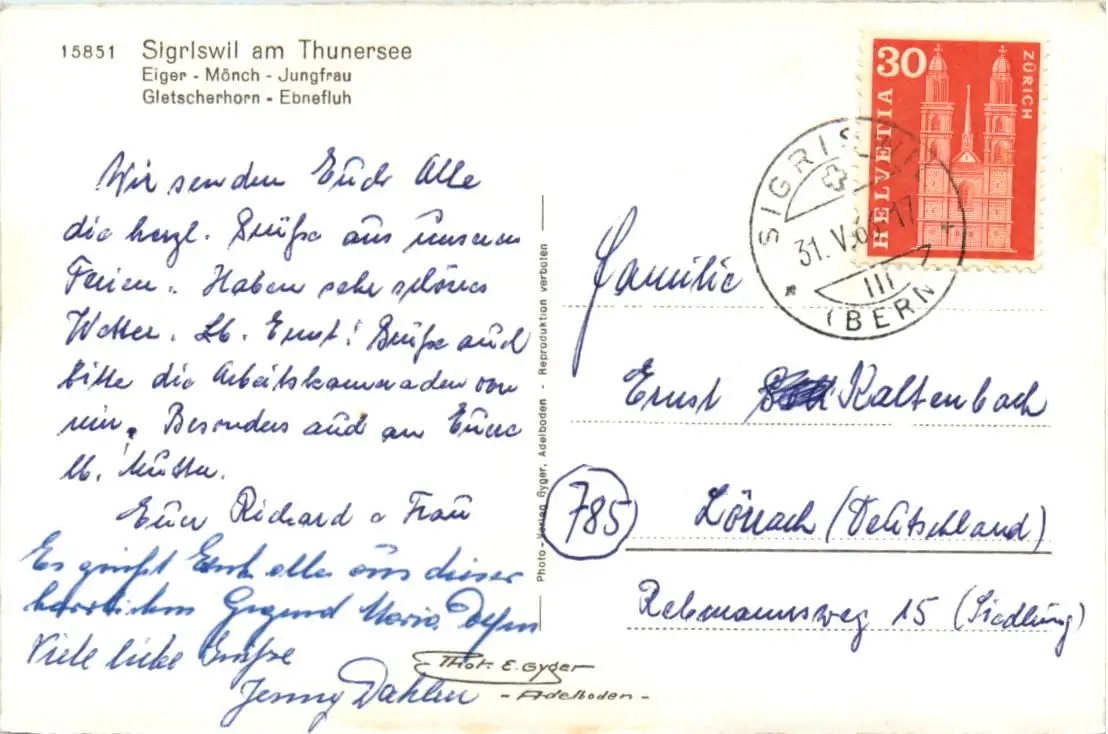 15851 Sigriswil am Thunersee
Eiger - Mönch - Jungfrau
Gletscherhorn - Ebnefluh
Wir senden Euch Alle
die herzl. Grüße aus unseren
Ferien. Haben sehr schönes
Wetter. Lb. Ernst! Grüße auch
bitte die Arbeitskameraden von
mir. Besonders auch an Eure
lb. Mutter.
Euer Richard u Frau
Es grüßt Euch alle aus dieser
herrlichen Gegend Maria
Viele liebe Grüße
Jenny Dahlen
Phot. E. Gyger
- Adelboden -
Photo-Verlag Gyger, Adelboden - Reproduktion verboten
30
HELVETIA
ZÜRICH
SIGRISWIL
31. V. 6 17
III
(BERN
Familie
Ernst Kaltenbach
785 Lörrach (Deutschland)
Rebmannsweg 15 (Siedlung)